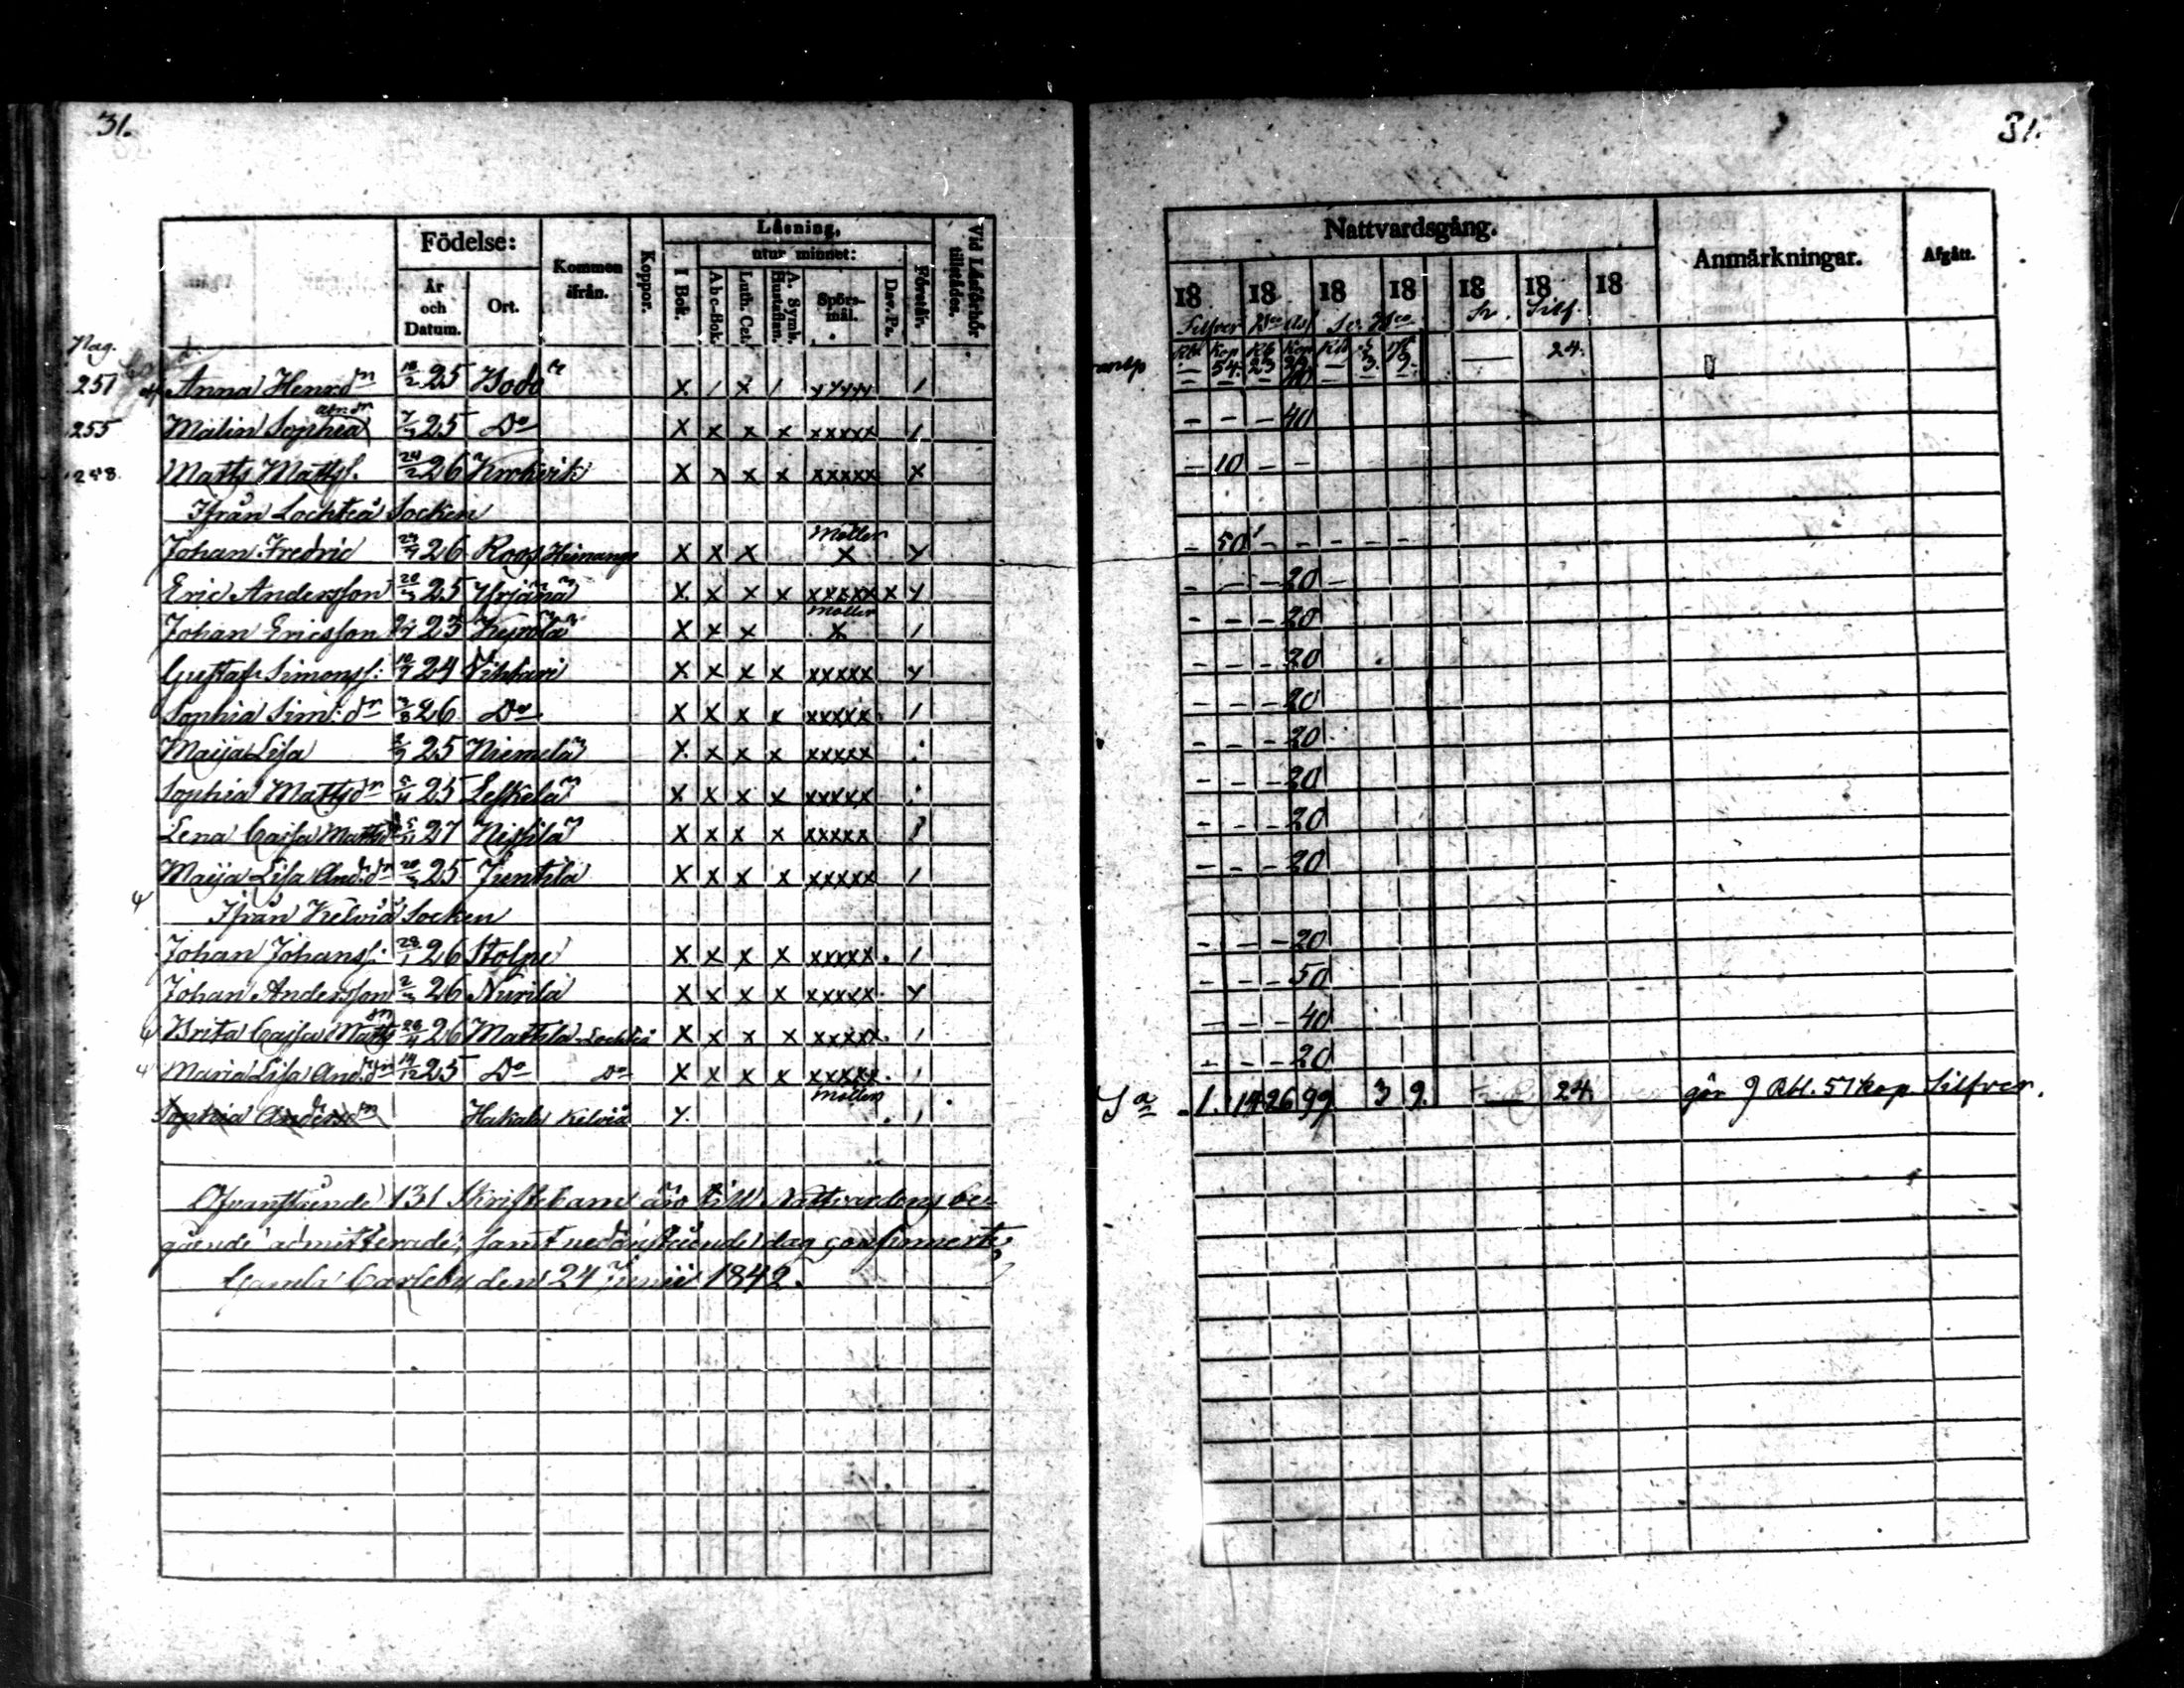 31.
Födelse:
År och Datum.
Ort.
Kommen ifrån.
Koppor.
Läsning,
utur minnet:
I Bok.
Abc-Bok.
Luth. Cat.
A. Symb. Hustaflan.
Spörsmål.
Dav. Ps.
Förstår.
Vid Läsförhör tillstådes.
Pag.
251 Anna Henr.dr 18/2 25 Bodö x / x / xxxxx /
255 Malin Sophia And.dr 7/3 25 Do x x x x xxxxx /
258. Matts Mattss. 24/2 26 Krokvik x x x x xxxxx x
Ifrån Lochteå Socken
Johan Fredric 29/4 26 Roos Himango x x x Möller x x
Eric Andersson 20/3 25 Yrjänä x x x x xxxxx x x
Johan Ericsson 23 Kyrölä x x x Möller x /
Gustaf Simonss: 10/9 24 Vihkari x x x x xxxxx x
Sophia Sim: dr 3/8 26 Do x x x x xxxxx /
Maija Lisa 2/9 25 Niemelä x x x x xxxxx
Sophia Mattsdr 5/11 25 Leskelä x x x x xxxxx
Lena Caisa Mattsd 5/11 27 Nissilä x x x x xxxxx
Maija Lisa And.dr 20/3 25 Juntila x x x x xxxxx /
Ifrån Kelviå Socken
Johan Johanss: 28/1 26 Stolpe x x x x xxxxx. /
Johan Andersson 2/3 26 Nurila x x x x xxxxx. x
Brita Caisa Mattsdr 28/4 26 Mattila Lochteå x x x x xxxxx. /
Maria Lisa And.dr 14/12 25 Do Do x x x x xxxxx. /
Sophia Andersdr Hakala Kelviå x. Möller /
Ofvanstående 131 Skriftebarn äro till Nattvardens be-
gående admitterade, samt nedanstående dag confirmerte,
Gamla Carleby den 24 Junii 1842.
31.
Nattvardsgång.
Anmärkningar.
Afgått.
18 18 18 18 18 18 18
Silfver Silf.
Rbl Kop Rb Kop
transp — 54. 23 — 3. 9. — 24.
– – – 40
– – – 40
– 10 – –
– 50 – – – – –
– – – 20 –
– – – 20
– – – 20
– – – 20
– – – 20
– – – 20
– – – 20
– – – 20
– – – 20
– – – 50
– – – 40
– – – 20
Sa 1. 14 26 99 3 9. — 24. gör 9 Rbl. 57 kop. Silfver.